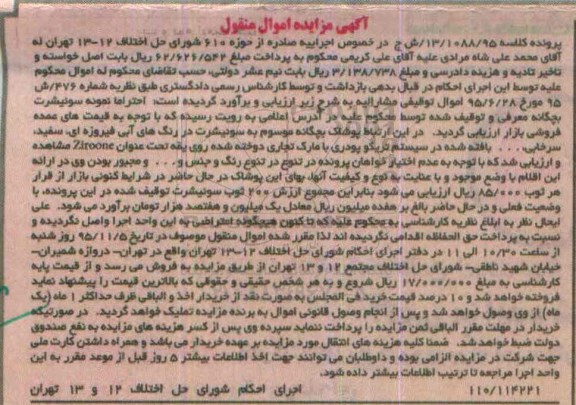 آگهی مزایده اموال منقول
پرونده کلاسه ۱۳/۱۰۸۸/۹۵/ش ح در خصوص اجرائیه صادره از حوزه ۶۱۰ شورای حل اختلاف ۱۲-۱۳ تهران له
آقای محمد علی شاه مرادی علیه آقای علی کریمی محکوم به پرداخت مبلغ ۶۲/۶۲۶/۵۴۲ ریال بابت اصل خواسته و
تاخیر تادیه و هزینه دادرسی و مبلغ ۳/۱۳۸/۷۳۸ ریال بابت نیم عشر دولتی، حسب تقاضای محکوم له اموال محکوم
علیه توسط این اجرای احکام در قبال بدهی بازداشت و توسط کارشناس رسمی دادگستری طبق نظریه شماره ۴۷۶/ش
۹۵ مورخ ۹۵/۶/۲۸ اموال توقیفی مشارالیه به شرح زیر ارزیابی و برآورد گردیده است: احتراما نمونه سوئیشرت
بچگانه معرفی و توقیف شده توسط محکوم علیه در آدرس اعلامی به رویت رسیده که با توجه به قیمت های عمده
فروشی بازار ارزیابی گردید. در این ارتباط پوشاک بچگانه موسوم به سوئیشرت در رنگ های آبی فیروزه ای، سفید،
سرخابی، ... بافته شده در سیستم تریکو پودری با مارک تجاری دوخته شده روی یقه تحت عنوان Ziroone مشاهده
و ارزیابی شد که با توجه به عدم اختیار خواهان پرونده در تنوع در تنوع رنگ و جنس و... و مجبور بودن وی در ارائه
این اقلام با وضع موجود و با عنایت به نوع و کیفیت آنها، بهای این پوشاک در حال حاضر در شرایط کنونی بازار از قرار
هر ثوب ۸۵/۰۰۰ ریال ارزیابی می شود بنابراین مجموع ارزش ۲۰۰ ثوب سوئیشرت توقیف شده در این پرونده، با
وضعیت فعلی و در حال حاضر بالغ بر هفده میلیون ریال معادل یک میلیون و هفتصد هزار تومان برآورد می شود. علی
ایحال نظر به ابلاغ نظریه کارشناسی به محکوم علیه که تا کنون هیچگونه اعتراضی به این واحد اجرا واصل نگردیده و
نسبت به پرداخت حق الحفاظه اقدامی نگردیده اند لذا مقرر شده اموال منقول موصوف در تاریخ ۹۵/۱۱/۵ روز شنبه
از ساعت ۱۰/۳۰ الی ۱۱ در دفتر اجرای احکام شورای حل اختلاف ۱۲-۱۳ تهران واقع در تهران- دروازه شمیران-
خیابان شهید ناطقی- شورای حل اختلاف مجتمع ۱۲ و ۱۳ تهران از طریق مزایده به فروش می رسد و از قیمت پایه
کارشناسی به مبلغ ۱۷/۰۰۰/۰۰۰ ریال شروع و به هر شخص حقیقی و حقوقی که بالاترین قیمت را پیشنهاد نماید
فروخته خواهد شد و ۱۰ درصد قیمت خرید فی المجلس به صورت نقد از خریدار اخذ و الباقی ظرف حداکثر ۱ ماه (یک
ماه) از وی وصول خواهد شد و پس از انجام وصول قانونی اموال به برنده مزایده تملیک خواهد گردید. در صورتیکه
خریدار در مهلت مقرر الباقی ثمن مزایده را پرداخت ننماید سپرده وی پس از کسر هزینه های مزایده به نفع صندوق
دولت ضبط خواهد شد. ضمنا کلیه هزینه های انتقال مورد مزایده بر عهده خریدار می باشد و همراه داشتن کارت ملی
جهت شرکت در مزایده الزامی بوده و داوطلبان می توانند جهت اخذ اطلاعات بیشتر ۵ روز قبل از موعد مقرر به این
واحد اجرا مراجعه تا ترتیب اطلاعات بیشتر داده شود.
۱۱۰/۱۱۴۲۲۱ اجرای احکام شورای حل اختلاف ۱۲ و ۱۳ تهران